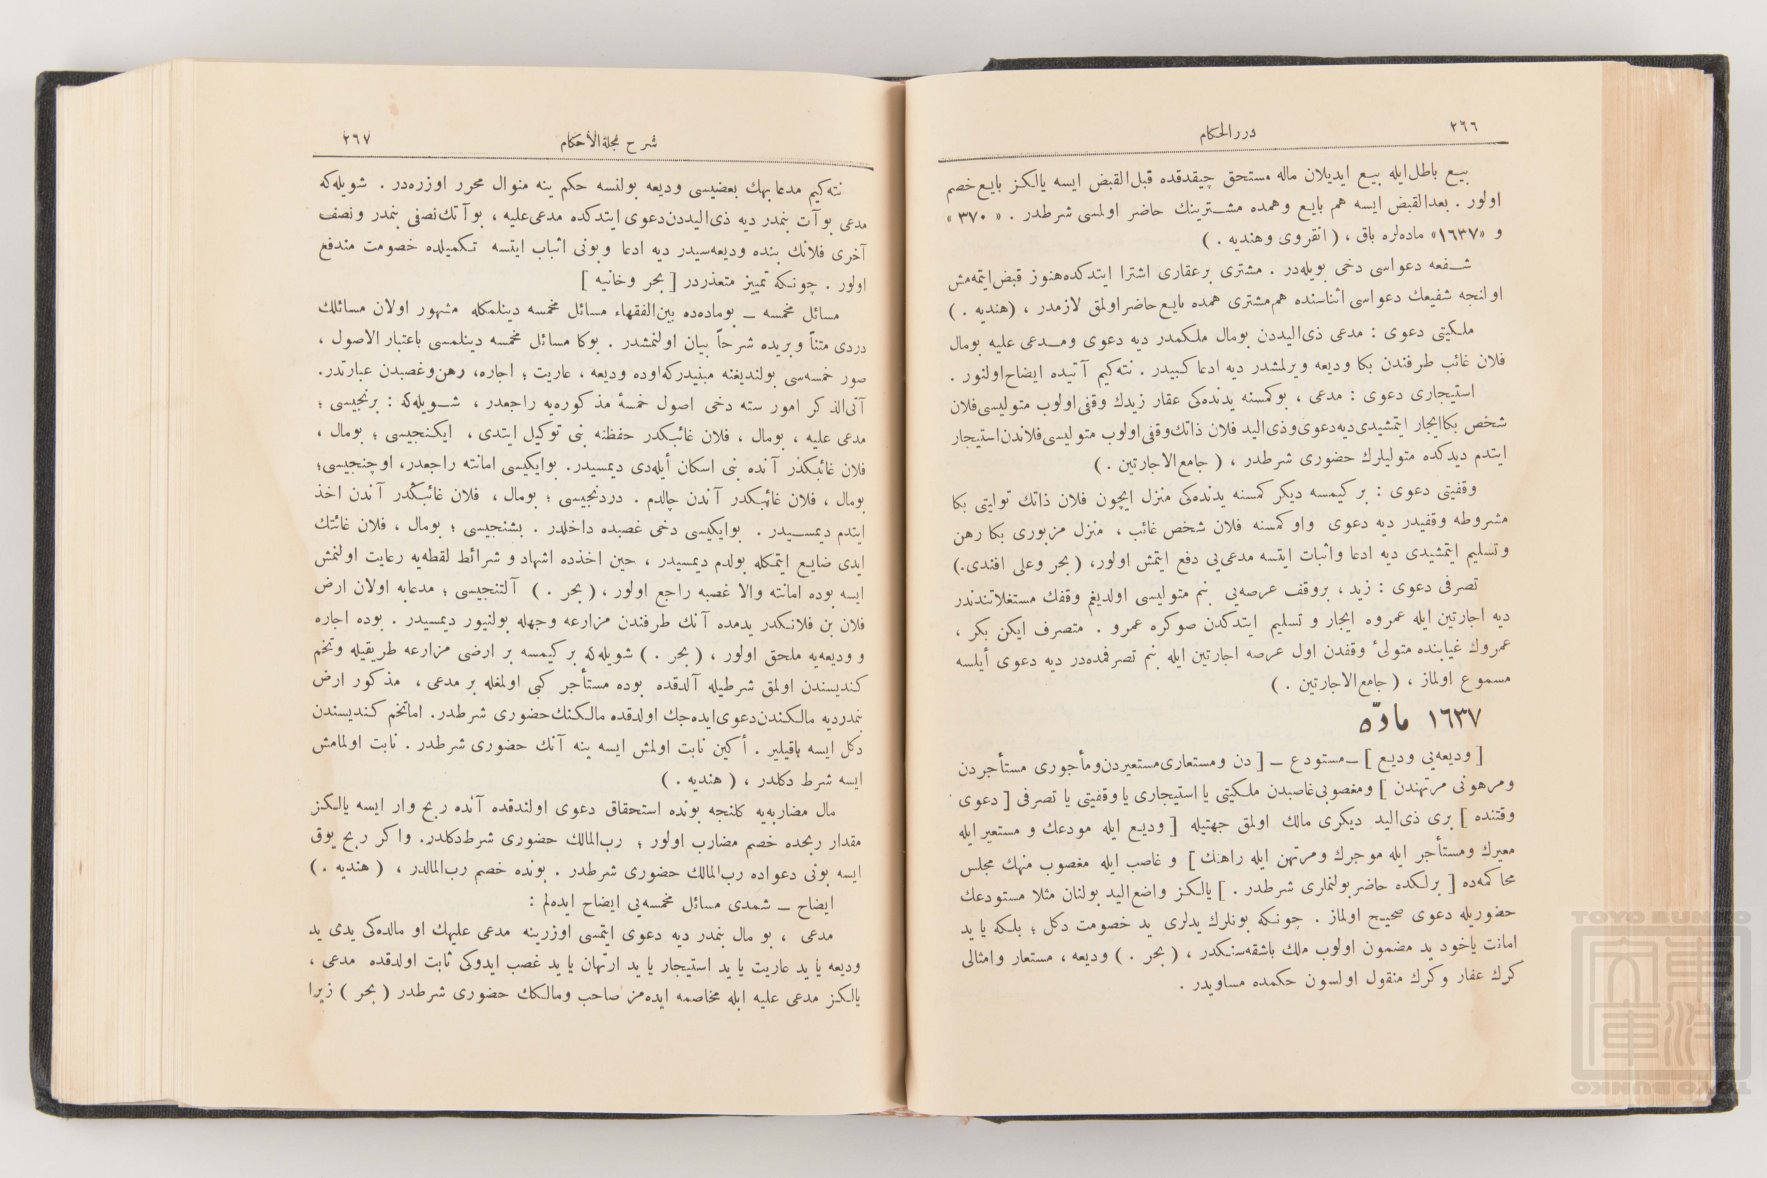 ٢٦٦
دررالحكام
بيع باطل‌ايله بيع ايديلان ماله مستحق چيقدقده قبل‌القبض ايسه يالكز بايع خصم
اولور . بعدالقبض ايسه هم بايع وهمده مشـترينك حاضر اولمسى شرطدر . « ٣٧٠ »
و «١٦٣٧» ماده‌لره باق ، ( انقروى وهنديه . )
شـفعه دعواسى دخى بويله‌در . مشترى برعقارى اشترا ايتدكده‌هنوز قبض‌ايتمه‌مش
اولنجه شفيعك دعواسى اثناسنده هم‌مشترى همده بايع حاضراولمق لازمدر ، (هنديه . )
ملكيتى دعوى : مدعى ذى‌اليددن بومال ملكمدر ديه دعوى ومـدعى عليه بومال
فلان غائب طرفندن بكا وديعه ويرلمشدر ديه ادعا كبيدر . نته‌كيم آتيده ايضاح‌اولنور .
استيجارى دعوى : مدعى ، بوكمسنه يدنده‌كى عقار زيدك وقفى‌اولوب متوليسى‌فلان
شخص بكاايجار ايتمشيدى‌ديه‌دعوى‌وذى‌اليد فلان ذاتك‌وقفى‌اولوب متوليسى‌فلاندن‌استيجار
ايتدم ديدكده متوليلرك حضورى شرطدر ، ( جامع‌الاجارتين . )
وقفيتى دعوى : بر كيمسه ديكر كمسنه يدنده‌كى منزل ايچون فلان ذاتك توليتى بكا
مشروطه وقفيدر ديه دعوى واو كمسنه فلان شخص غائب ، منزل مزبورى بكا رهن
وتسليم ايتمشيدى ديه ادعا واثبات ايتسه مدعى‌يى دفع ايتمش اولور، ( بحر وعلى افندى.)
تصرفى دعوى : زيد ، بروقف عرصه‌يى بنم متوليسى اولديغم وقفك مستغلاتندندر
ديه اجارتين ايله عمروه ايجار و تسليم ايتدكدن صوكره عمرو . متصرف ايكن بكر ،
عمروك غيابنده متولئ وقفدن اول عرصه اجارتين ايله بنم تصرفمده‌در ديه دعوى أيلسه
مسموع اولماز ، ( جامع‌الاجارتين . )
١٦٣٧ مادّه
[ وديعه‌يى وديع ] ـ مستودع ـ [ دن ومستعارى‌مستعيردن‌ومأجورى مستأجردن
ومرهونى مرتهندن ] ومغصوبى‌غاصبدن ملكيتى يا استيجارى يا وقفيتى يا تصرفى [ دعوى
وقتنده ] برى ذى‌اليد ديكرى مالك اولمق جهتيله [ وديع ايله مودعك و مستعير ايله
معيرك ومستأجر ايله موجرك ومرتهن ايله راهنك ] و غاصب ايله مغصوب منهك مجلس
محاكمه‌ده [ برلكده حاضر بولنملرى شرطدر . ] يالكز واضع‌اليد بولنان مثلا مستودعك
حضوريله دعوى صحيح اولماز . چونكه بونلرك يدلرى يد خصومت دكل ؛ بلكه يا يد
امانت ياخود يد مضمون اولوب ملك باشقه‌سنكدر ، ( بحر . ) وديعه ، مستعار وامثالى
كرك عقار وكرك منقول اولسون حكمده مساويدر .
شرح مجلةالأحكام
٢٦٧
نته‌كيم مدعابهك بعضيسى وديعه بولنسه حكم ينه منوال محرر اوزره‌در . شويله‌كه
مدعى بوآت بنمدر ديه ذى‌اليددن‌دعوى ايتدكده مدعى‌عليه ، بوآتك‌نصفى بنمدر ونصف
آخرى فلانك بنده وديعه‌سيدر ديه ادعا وبونى اثبات ايتسه تكميلده خصومت مندفع
اولور . چونكه تمييز متعذردر [ بحر وخانيه ]
مسائل مخمسه ـ بوماده‌ده بين‌الفقهاء مسائل مخمسه دينلمكله مشهور اولان مسائلك
دردى متناً وبريده شرحاً بيان اولنمشدر . بوكا مسائل مخمسه دينلمسى باعتبار الاصول ،
صور خمسه‌سى بولنديغنه مبنيدركه‌اوده وديعه ، عاريت ؛ اجاره، رهن‌وغصبدن عبارتدر.
آتى‌الذكر امور سته دخى اصول خمسهٔ مذكوره‌يه راجعدر ، شـويله‌كه : برنجيسى ؛
مدعى عليه ، بومال ، فلان غائبكدر حفظنه بنى توكيل ايتدى ، ايكنجيسى ؛ بومال ،
فلان غائبكدر آنده بنى اسكان أيله‌دى ديمسيدر. بوايكيسى امانته راجعدر، اوچنجيسى؛
بومال ، فلان غائبكدر آندن چالدم . دردنجيسى ؛ بومال ، فلان غائبكدر آندن اخذ
ايتدم ديمسـيدر . بوايكيسى دخى غصبده داخلدر . بشنجيسى ؛ بومال ، فلان غائبك
ايدى ضايع ايتمكله بولدم ديمسيدر ، حين اخذده اشهاد و شرائط لقطه‌يه رعايت اولنمش
ايسه بوده امانته والا غصبه راجع اولور ، ( بحر . ) آلتنجيسى ؛ مدعابه اولان ارض
فلان بن فلانكدر يدمده آنك طرفندن مزارعه وجهله بولنيور ديمسيدر . بوده اجاره
و وديعه‌يه ملحق اولور ، ( بحر . ) شويله‌كه بر كيمسه بر ارضى مزارعه طريقيله وتخم
كنديسندن اولمق شرطيله آلدقده بوده مستأجر كبى اولمغله بر مدعى ، مذكور ارض
بنمدرديه مالكندن‌دعوى‌ايده‌جك اولدقده مالكنك‌حضورى شرطدر. اماتخم كنديسندن
دكل ايسه باقيلير . أكين نابت اولمش ايسه ينه آنك حضورى شرطدر . نابت اولمامش
ايسه شرط دكلدر ، ( هنديه . )
مال مضاربه‌يه كلنجه بونده استحقاق دعوى اولندقده آنده ربح وار ايسه يالكز
مقدار ربحده خصم مضارب اولور ؛ رب‌المالك حضورى شرط‌دكلدر. واكر ربح يوق
ايسه بونى دعواده رب‌المالك حضورى شرطدر . بونده خصم رب‌المالدر ، ( هنديه . )
ايضاح ـ شمدى مسائل مخمسه‌يى ايضاح ايده‌لم :
مدعى ، بو مال بنمدر ديه دعوى ايتمسى اوزرينه مدعى عليهك او مالده‌كى يدى يد
وديعه يا يد عاريت يا يد استيجار يا يد ارتهان يا يد غصب ايدوكى ثابت اولدقده مدعى ،
يالكز مدعى عليه ايله مخاصمه ايده‌مز صاحب ومالكك حضورى شرطدر ( بحر ) زيرا
TOYO BUNKO
東洋文庫
TOYO BUNKO